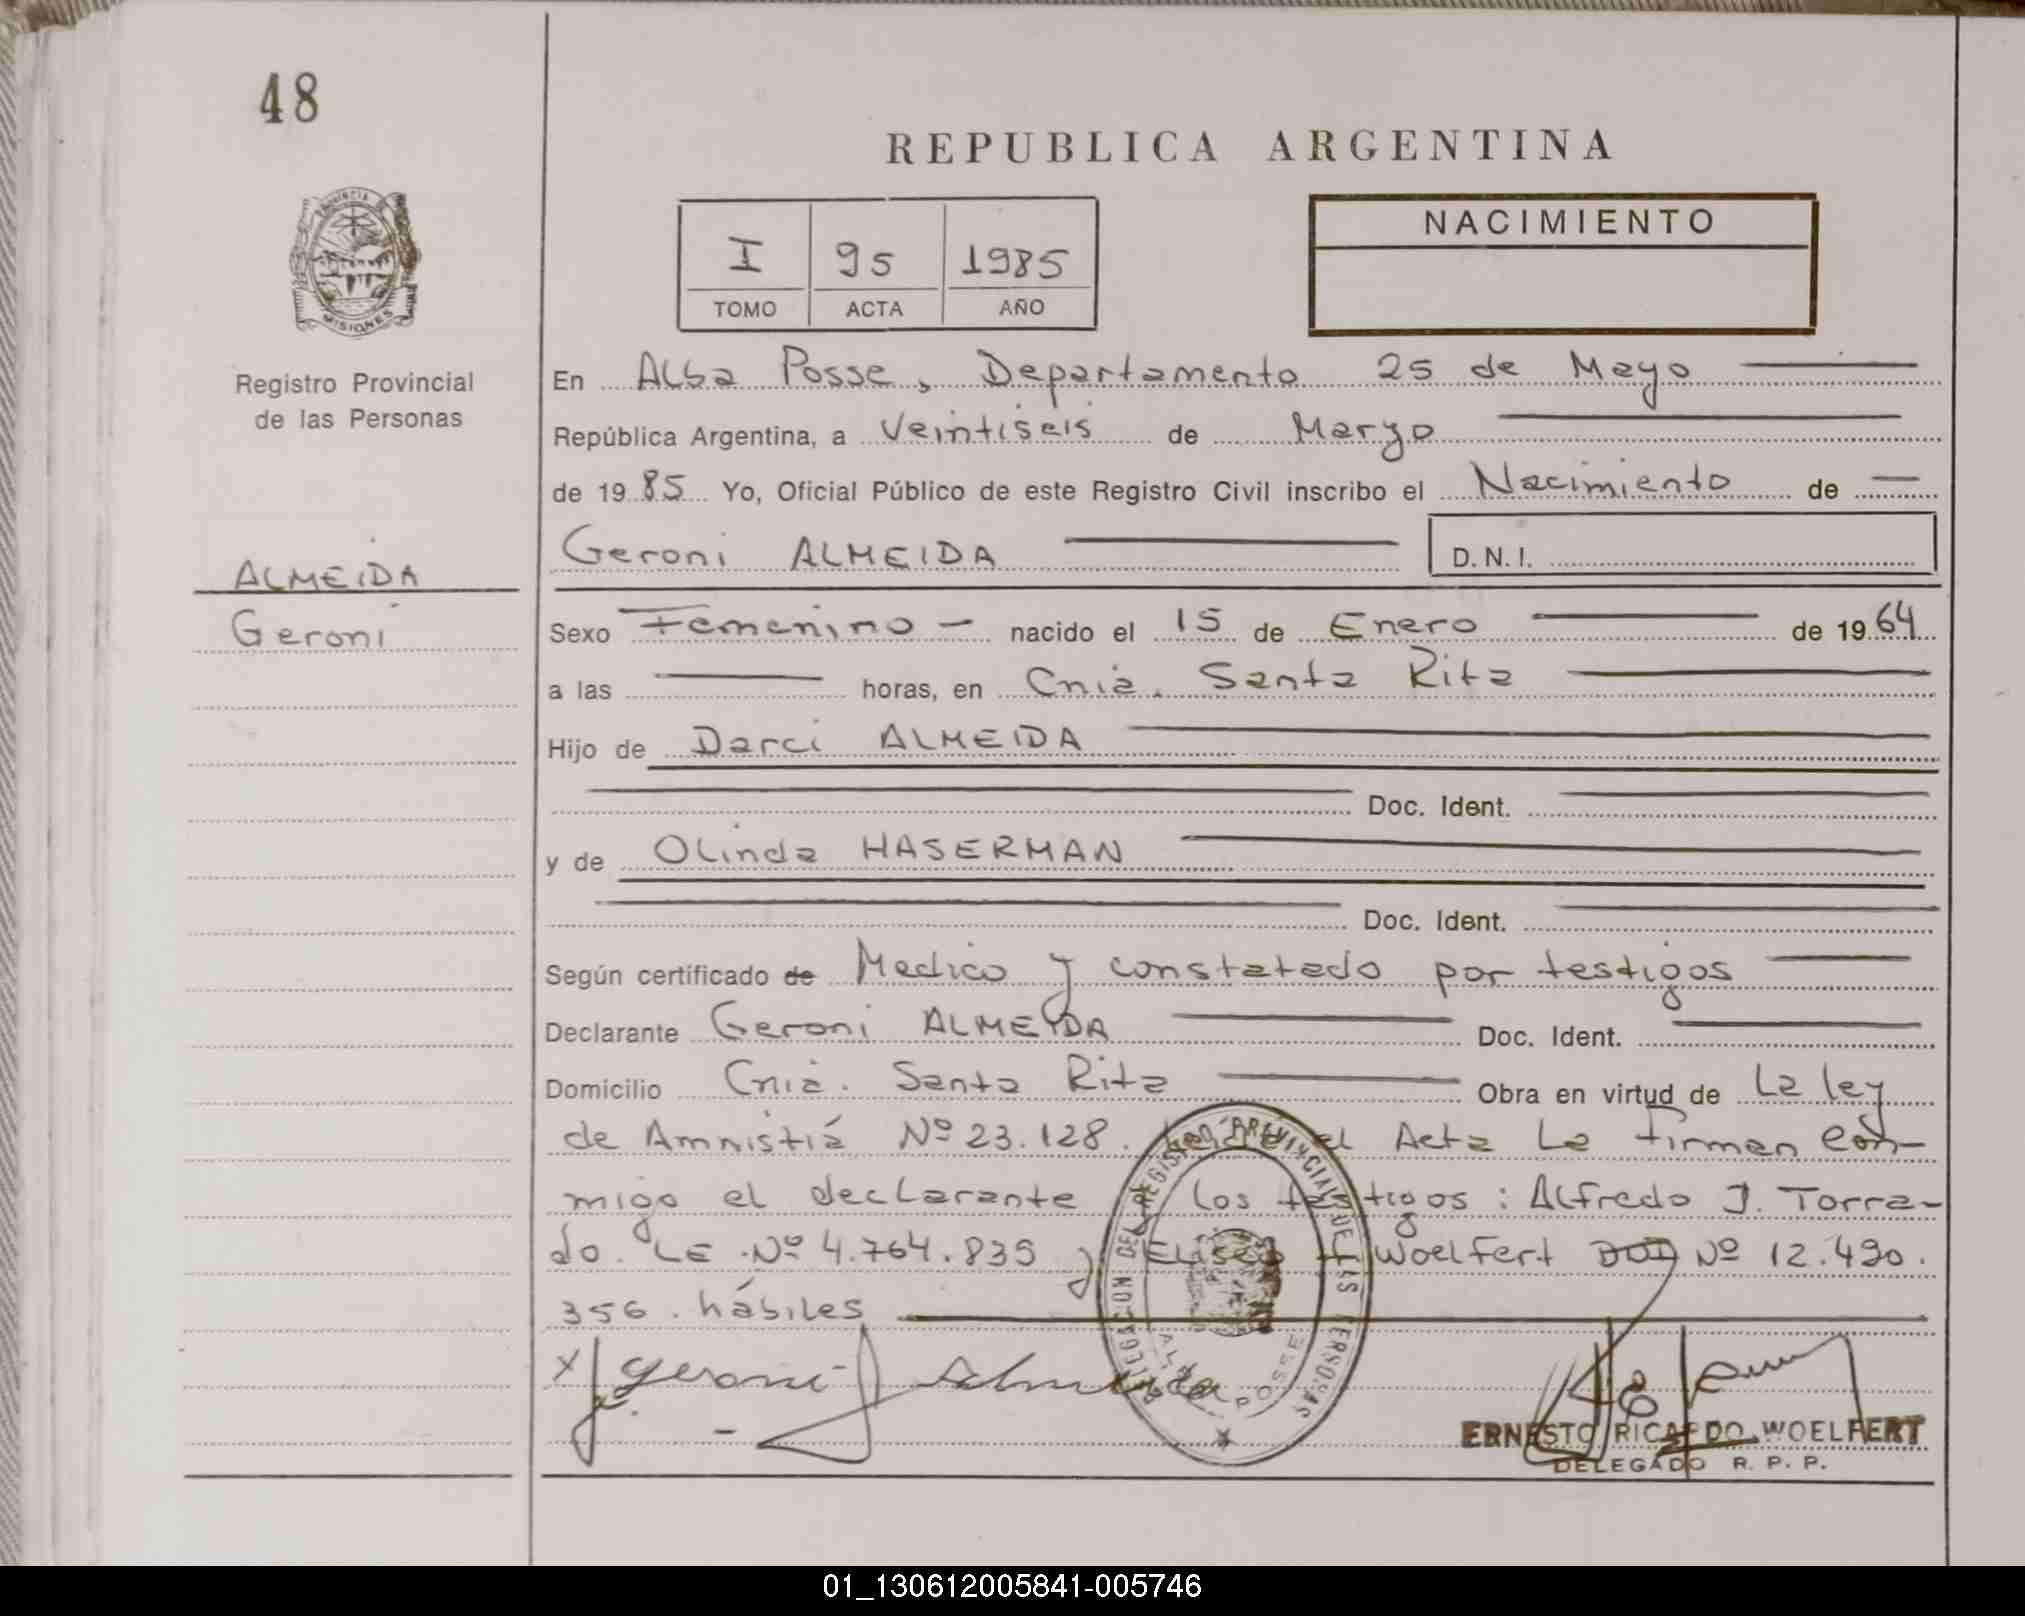 48
REPUBLICA ARGENTINA
PROVINCIA DE
MISIONES
Registro Provincial
de las Personas
I 95 1985
TOMO ACTA AÑO
NACIMIENTO
En Alba Posse, Departamento 25 de Mayo
República Argentina, a Veintiseis de Marzo
de 1985 Yo, Oficial Público de este Registro Civil inscribo el Nacimiento de
Geroni ALMEIDA D.N.I.
ALMEIDA
Geroni
Sexo Femenino - nacido el 15 de Enero de 1964
a las horas, en Cnia. Santa Rita
Hijo de Darci ALMEIDA
Doc. Ident.
y de Olinda HASERMAN
Doc. Ident.
Según certificado de Medico y constatado por testigos
Declarante Geroni ALMEIDA Doc. Ident.
Domicilio Cnia. Santa Rita Obra en virtud de La ley
de Amnistiá Nº 23.128. el Acta La firman con-
migo el declarante los testigos: Alfredo J. Torra-
do. LE Nº 4.764.835 y H Woelfert DNI Nº 12.490.
356. hábiles
x Geroni Almeida
DELEGACION DEL REGISTRO PROVINCIAL DE LAS PERSONAS
ALBA POSSE
ERNESTO RICARDO WOELFERT
DELEGADO R. P. P.
01_130612005841-005746